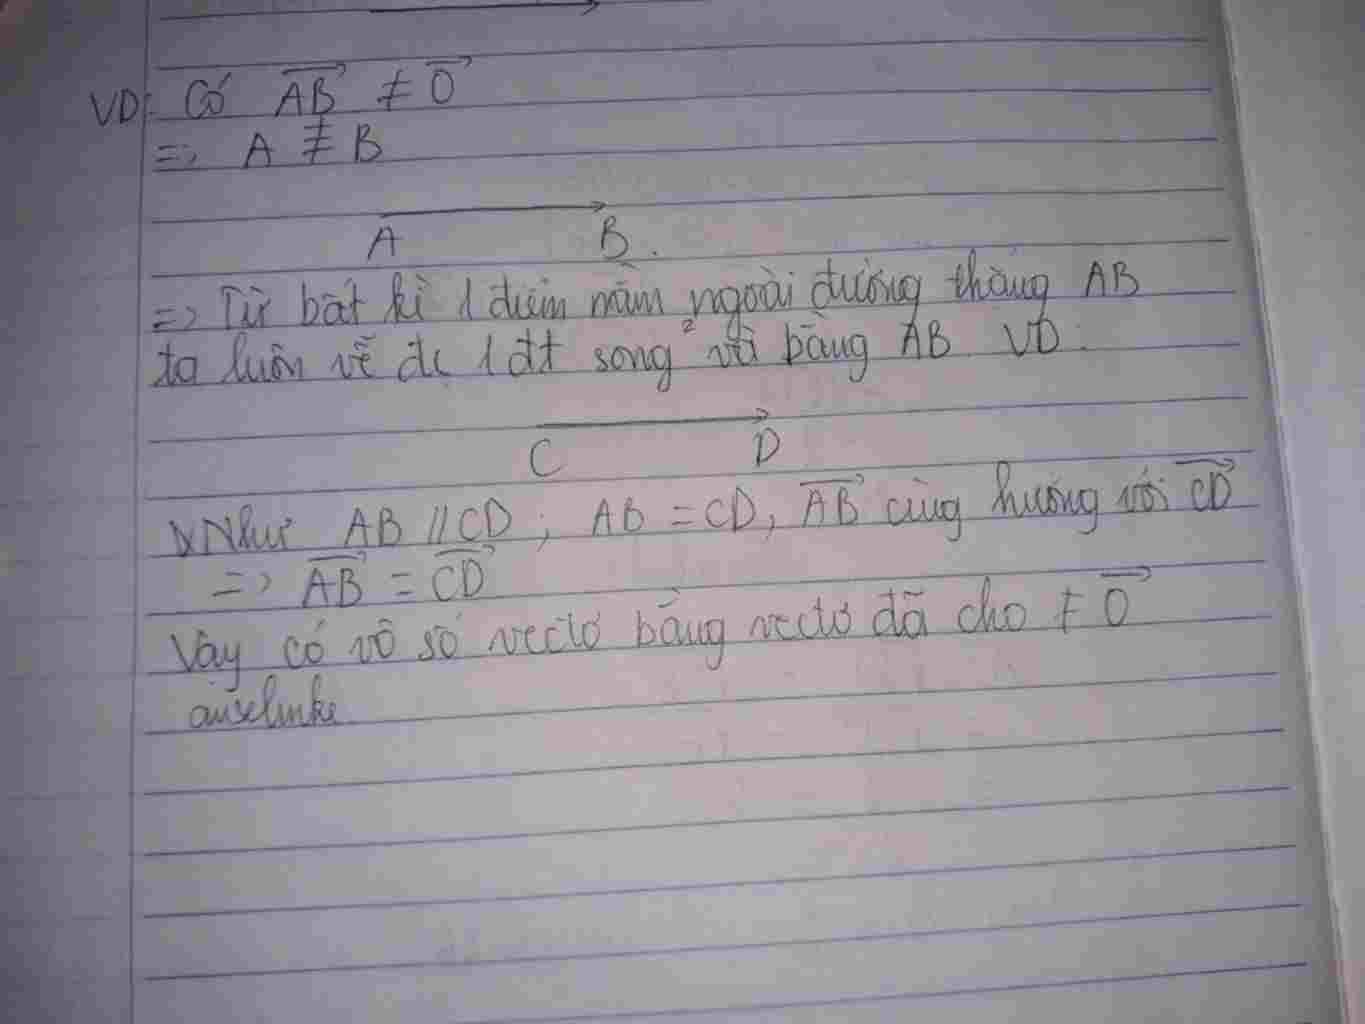 VD: Có \overrightarrow{AB} ≠ \overrightarrow{O}
=> A ≢ B
A B.
=> Từ bất kì 1 điểm nằm ngoài đường thẳng AB
ta luôn vẽ đc 1 đt song² và bằng AB. VD:
C D
Như AB // CD ; AB = CD, \overrightarrow{AB} cùng hướng với \overrightarrow{CD}
=> \overrightarrow{AB} = \overrightarrow{CD}
Vậy có vô số vectơ bằng vectơ đã cho ≠ \overrightarrow{O}